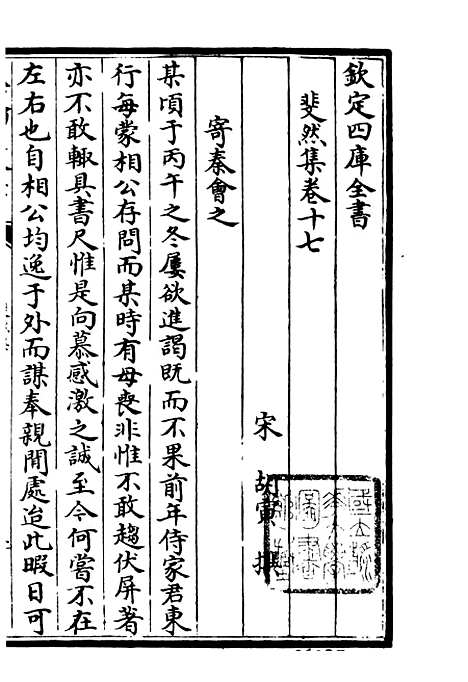 欽定四庫全書
斐然集卷十七
宋 胡寅 撰
寄秦會之
某頃于丙午之冬屢欲進謁既而不果前年侍家君東
行每蒙相公存問而某時有母喪非惟不敢趨伏屏著
亦不敢輙具書尺惟是向慕感激之誠至今何嘗不在
左右也自相公均逸于外而謀奉親閒處迨此暇日可